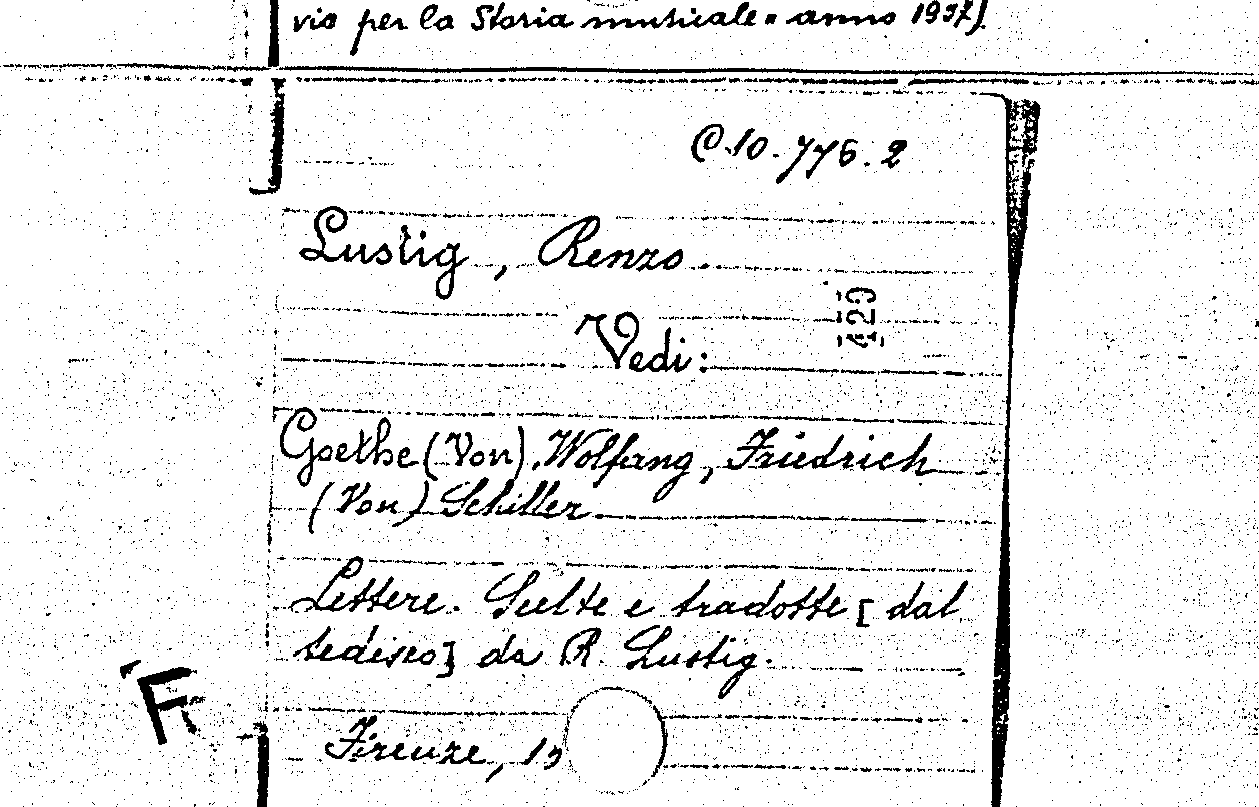 vio per la Storia musicale" anno 1937).
C.10.776.2
Lustig, Renzo.
Vedi:
Goethe (Von), Wolfang, Friedrich
(Von) Schiller.
Lettere. Scelte e tradotte [dal
tedesco] da R. Lustig.
F
Firenze, 19